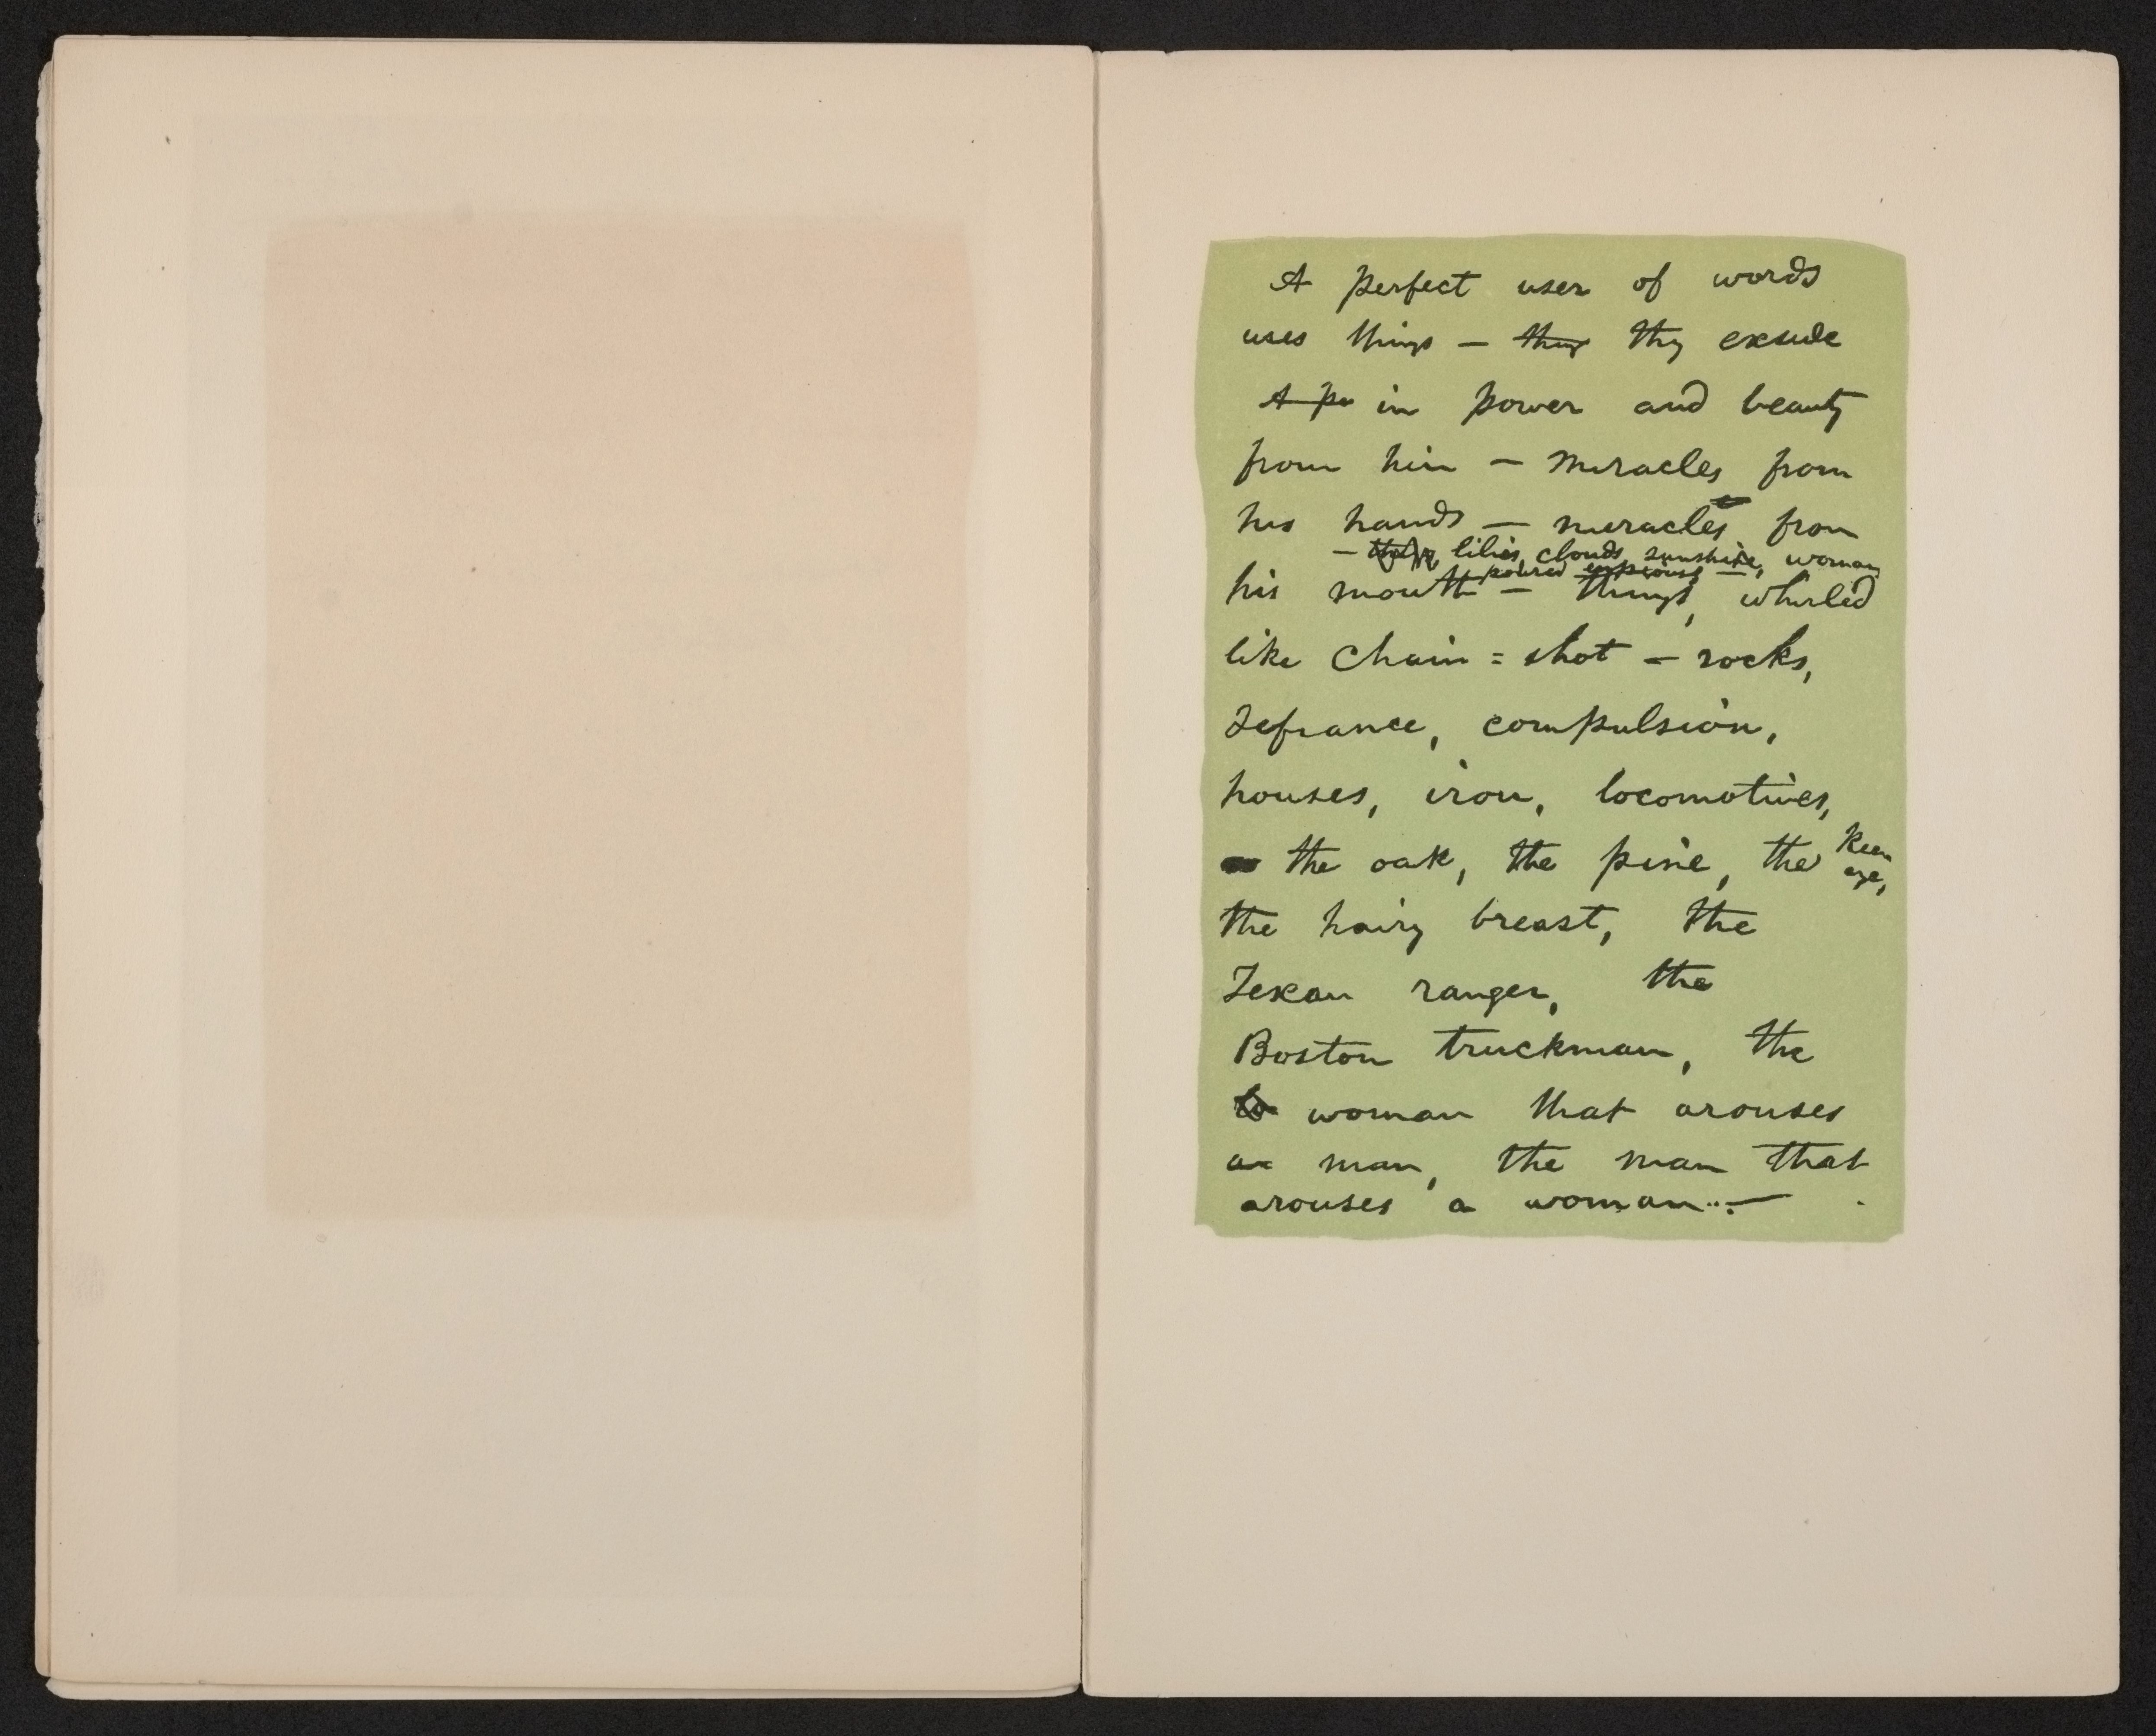 A perfect user of words
uses things — they exude
A pe in power and beauty
from him — miracles from
his hands — miracles from
— lilies, clouds, sunshine, woman,
poured
his mouth — things, whirled
like chain = shot — rocks,
defiance, compulsion,
houses, iron, locomotives,
the oak, the pine, the keen
eye,
the hairy breast, the
Texan ranger, the
Boston truckman, the
woman that arouses
a man, the man that
arouses a woman